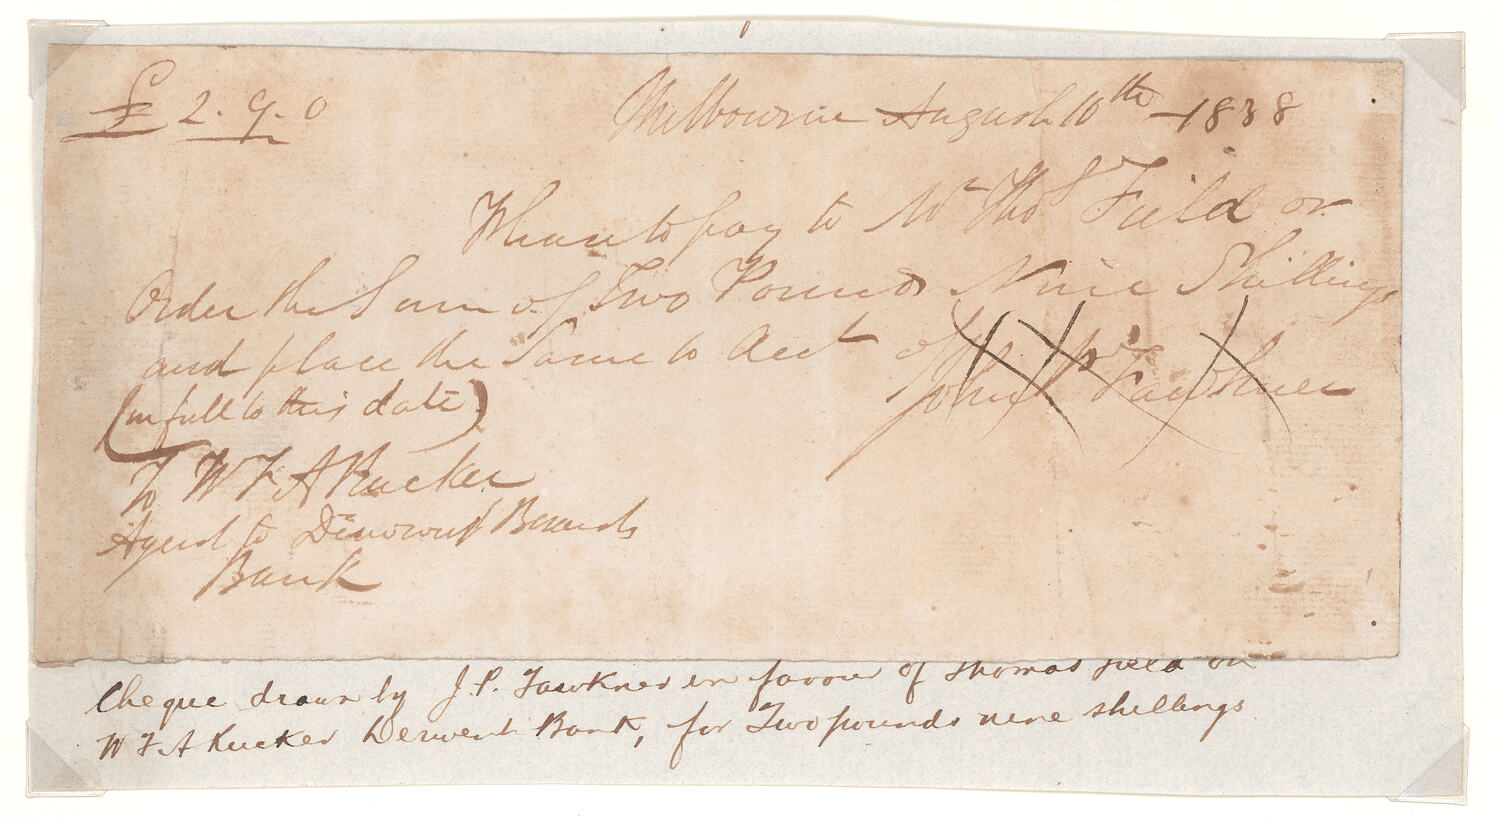 £ 2. 9. 0
Melbourne August 10th 1838
Please to pay to Mr Thos Field or
Order the Sum of Two Pounds Nine Shillings
and place the Same to Acct of
(in full to this date)
John P Fawkner
To W F A Rucker
Agent to Bank
cheque drawn by J. P. Fawkner in favour of Thomas Field on
W F A Rucker Derwent Bank, for Two pounds nine shillings